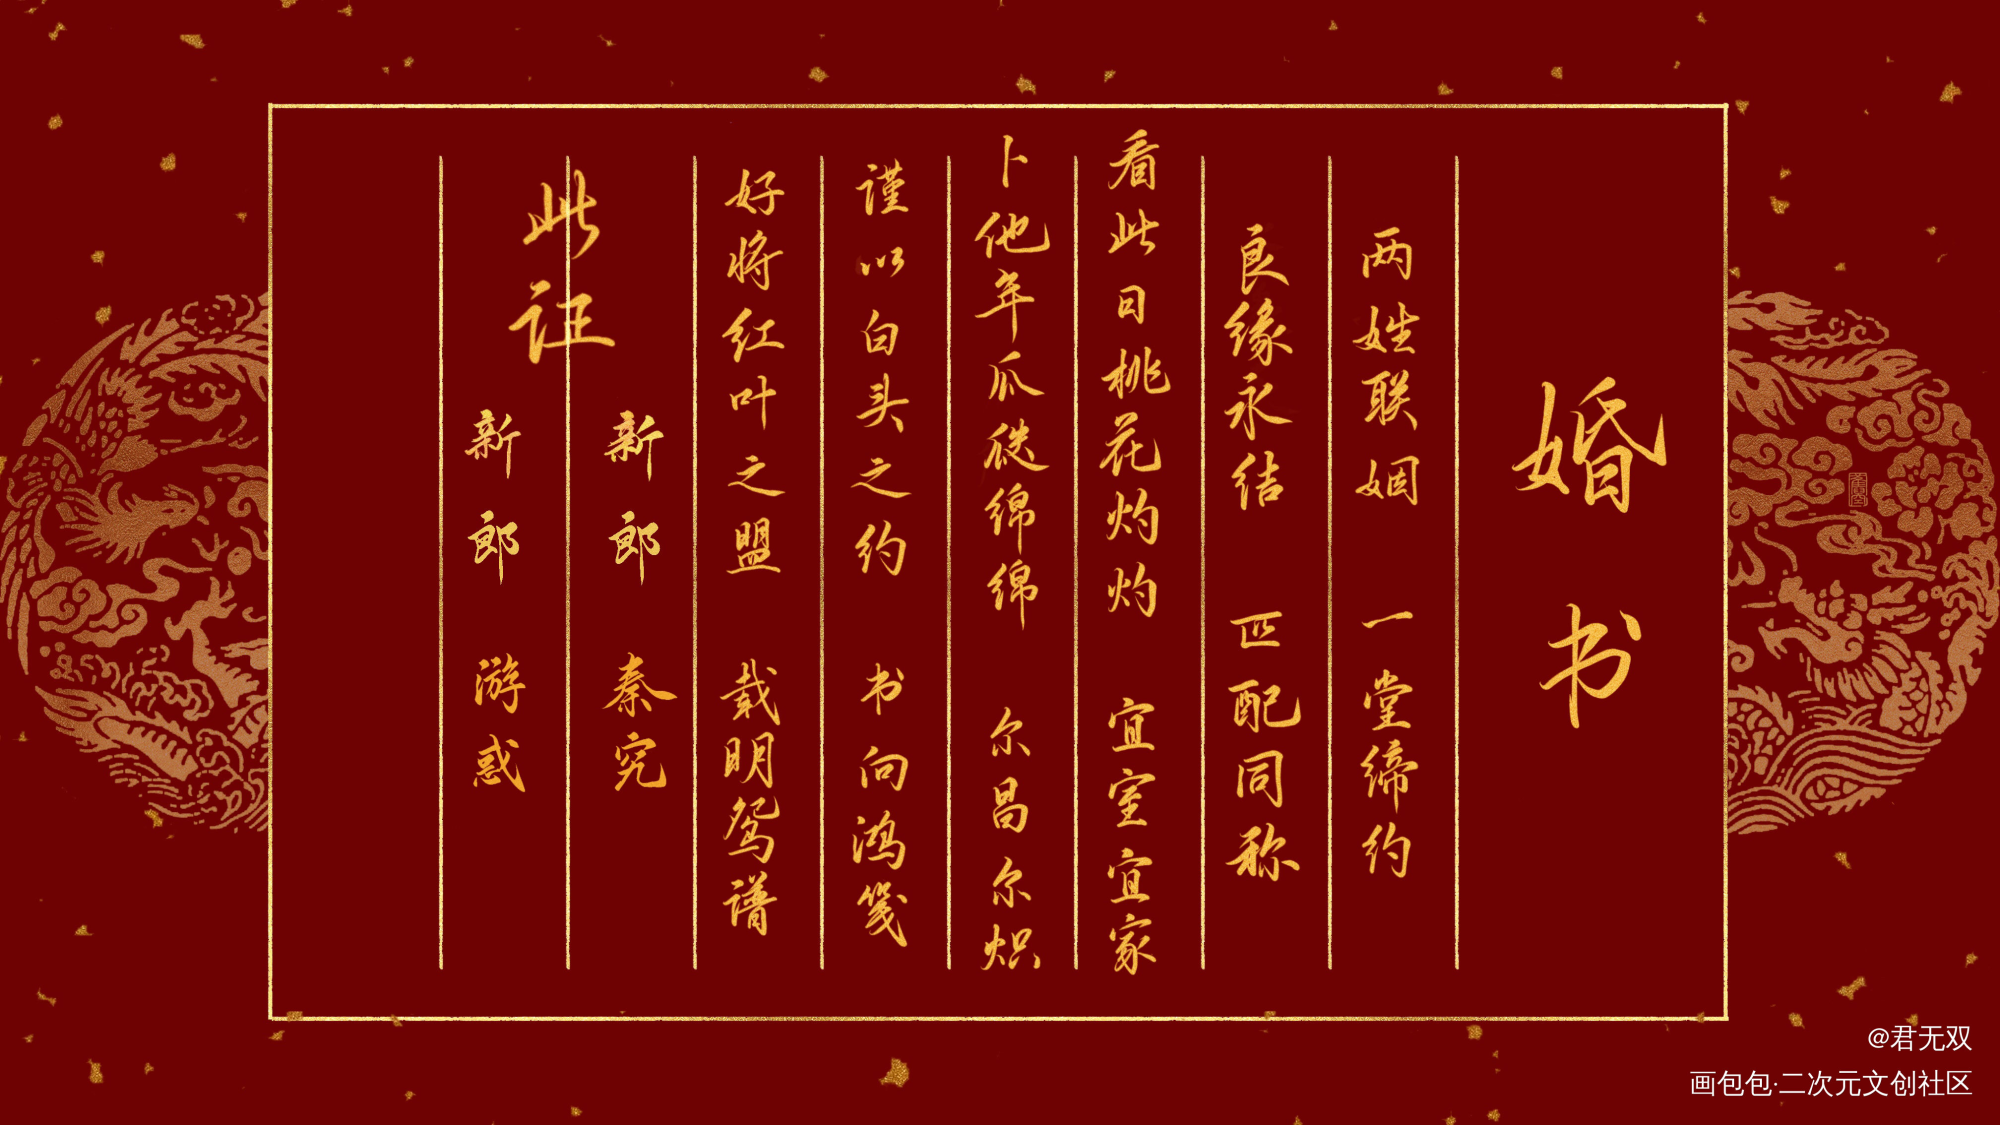 婚书
两姓联姻 一堂缔约
良缘永结 匹配同称
看此日桃花灼灼 宜室宜家
卜他年瓜瓞绵绵 尔昌尔炽
谨以白头之约 书向鸿笺
好将红叶之盟 载明鸳谱
此证
新郎 秦究
新郎 游惑
@君无双
画包包·二次元文创社区